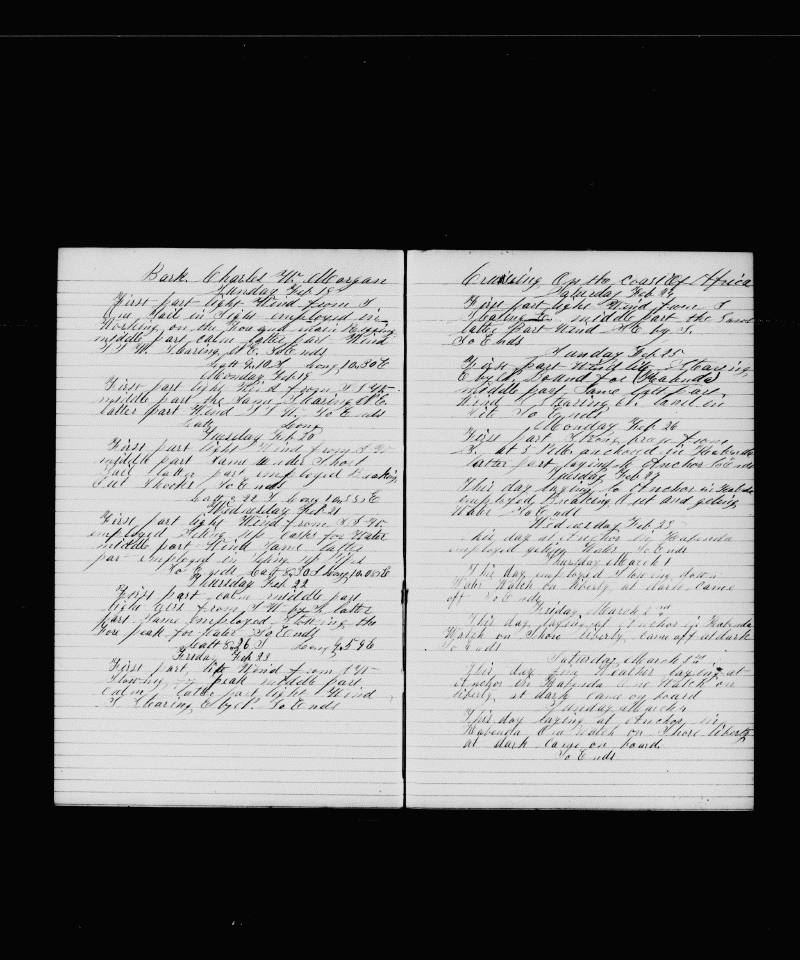 Bark. Charles W. Morgan
Sunday Feb 18
First part light Wind from S.
One Sail in Sight employed in
Working on the Fore and main Rigging
middle part calm latter part Wind
S S W. Stearing S E. So Ends
Latt 9.10 S Long 10.30 E
Monday Feb 19
First part light Wind from S S W.
middle part the Same Stearing N E
latter part Wind S S W. So Ends
Latt Long
Tuesday Feb 20
First part light Wind from S W
middle part Same under Short
Sail latter part employed Breaking
Out So Ends
Latt 9.22 S Long 10.33 E
Wednesday Feb 21
First part light Wind from S S W.
employed up Casks for Water
middle part Wind Same latter
part employed in up
So Ends Latt 8.30 S Long 10.08 E
Thursday Feb 22
First part calm middle part
light airs from S W by S latter
part Same employed Stowing the
Fore peak for Water So Ends
Latt 8.26 S Long 9.56
Friday Feb 23
First part light Wind from S W
Stowing Fore peak middle part
Calm latter part light Wind
S Stearing E by N So Ends
Cruising On the Coast Of Africa
Saturday Feb 24
First part light Wind from S
middle part the Same
latter part Wind S E by S.
So Ends
Sunday Feb 25
First part Wind Stearing
E by N. Bound for Kabenda
middle part Same latter part
Wind Stearing E. land in
Site So Ends
Monday Feb 26
First part Strong breeze from
S. at 5 P.M. anchored in Kabenda
latter part laying to Anchor So Ends
Tuesday Feb 27
This day laying to Anchor in Kabenda
employed Breaking Out and geting
Water So Ends
Wednesday Feb 28
This day at Anchor in Kabenda
employed geting Water So Ends
Thursday March 1
This day employed Stowing down
Water Watch on liberty at dark came
off So Ends
Friday March 2nd
This day laying at Anchor in Kabenda
Watch on Shore liberty came off at dark
So Ends
Saturday March
This day fine Weather laying at
Anchor in Kabenda One Watch on
liberty at dark came on board
Sunday March 4
This day laying at Anchor in
Kabenda One watch on Shore liberty
at dark Came on board.
So Ends